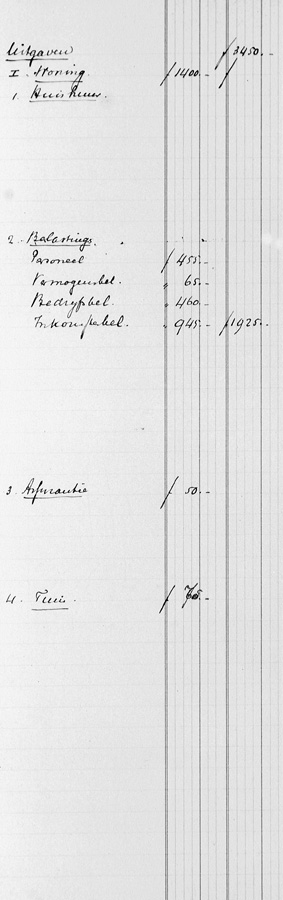 Uitgaven ƒ 3450.-
I. Woning. ƒ 1400.- ƒ
1. Huishuur.
2. Belastings.
Personeel ƒ 455.-
Vermogensbel. " 65.-
Bedryfsbel. " 460.-
Inkomstebel. " 945.- ƒ 1925.-
3. Assurantie ƒ 50.-
4. Tuin. ƒ 75.-